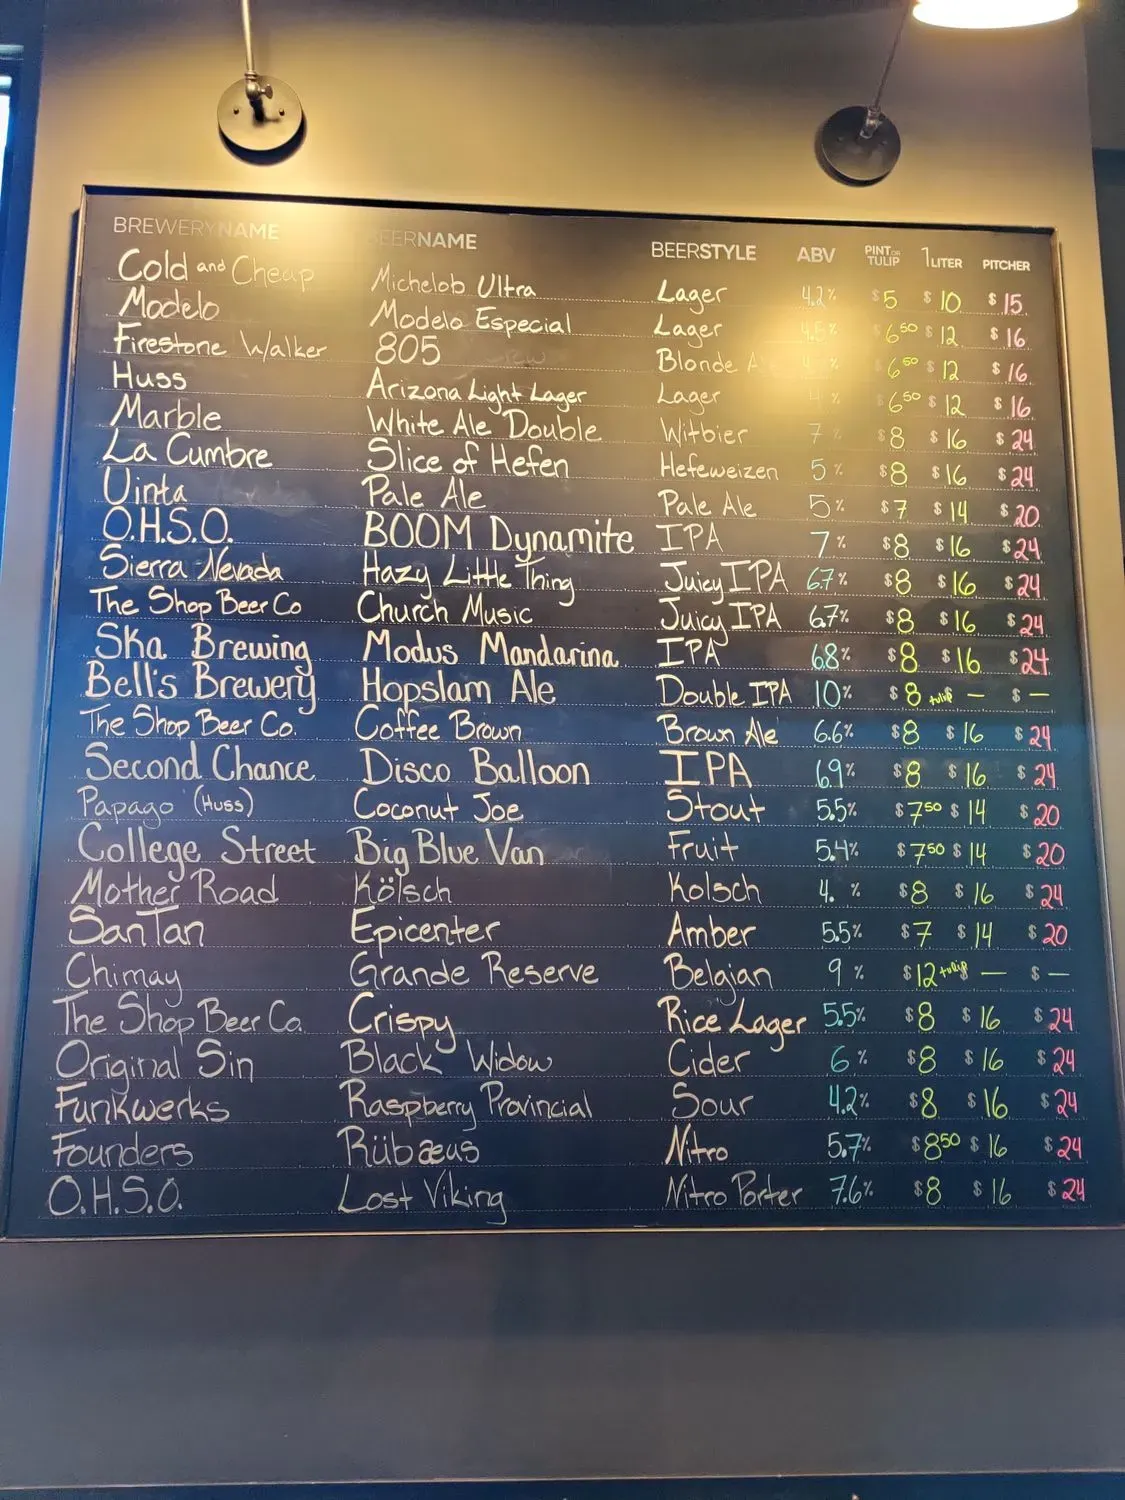 BREWERYNAME BEERNAME BEERSTYLE ABV PINT OR TULIP 1 LITER PITCHER
Cold and Cheap Michelob Ultra Lager 4.2% $5 $10 $15
Modelo Modelo Especial Lager 4.5% $6.50 $12 $16
Firestone Walker 805 Blonde $6.50 $12 $16
Huss Arizona Light Lager Lager % $6.50 $12 $16
Marble White Ale Double Witbier 7% $8 $16 $24
La Cumbre Slice of Hefen Hefeweizen 5% $8 $16 $24
Uinta Pale Ale Pale Ale 5% $7 $14 $20
O.H.S.O. BOOM Dynamite IPA 7% $8 $16 $24
Sierra Nevada Hazy Little Thing Juicy IPA 6.7% $8 $16 $24
The Shop Beer Co Church Music Juicy IPA 6.7% $8 $16 $24
Ska Brewing Modus Mandarina IPA 6.8% $8 $16 $24
Bell's Brewery Hopslam Ale Double IPA 10% $8 tulip $ — $ —
The Shop Beer Co. Coffee Brown Brown Ale 6.6% $8 $16 $24
Second Chance Disco Balloon IPA 6.9% $8 $16 $24
Papago (Huss) Coconut Joe Stout 5.5% $7.50 $14 $20
College Street Big Blue Van Fruit 5.4% $7.50 $14 $20
Mother Road Kölsch Kolsch 4. % $8 $16 $24
SanTan Epicenter Amber 5.5% $7 $14 $20
Chimay Grande Reserve Belgian 9% $12 tulip $ — $ —
The Shop Beer Co. Crispy Rice Lager 5.5% $8 $16 $24
Original Sin Black Widow Cider 6% $8 $16 $24
Funkwerks Raspberry Provincial Sour 4.2% $8 $16 $24
Founders Rübæus Nitro 5.7% $8.50 $16 $24
O.H.S.O. Lost Viking Nitro Porter 7.6% $8 $16 $24